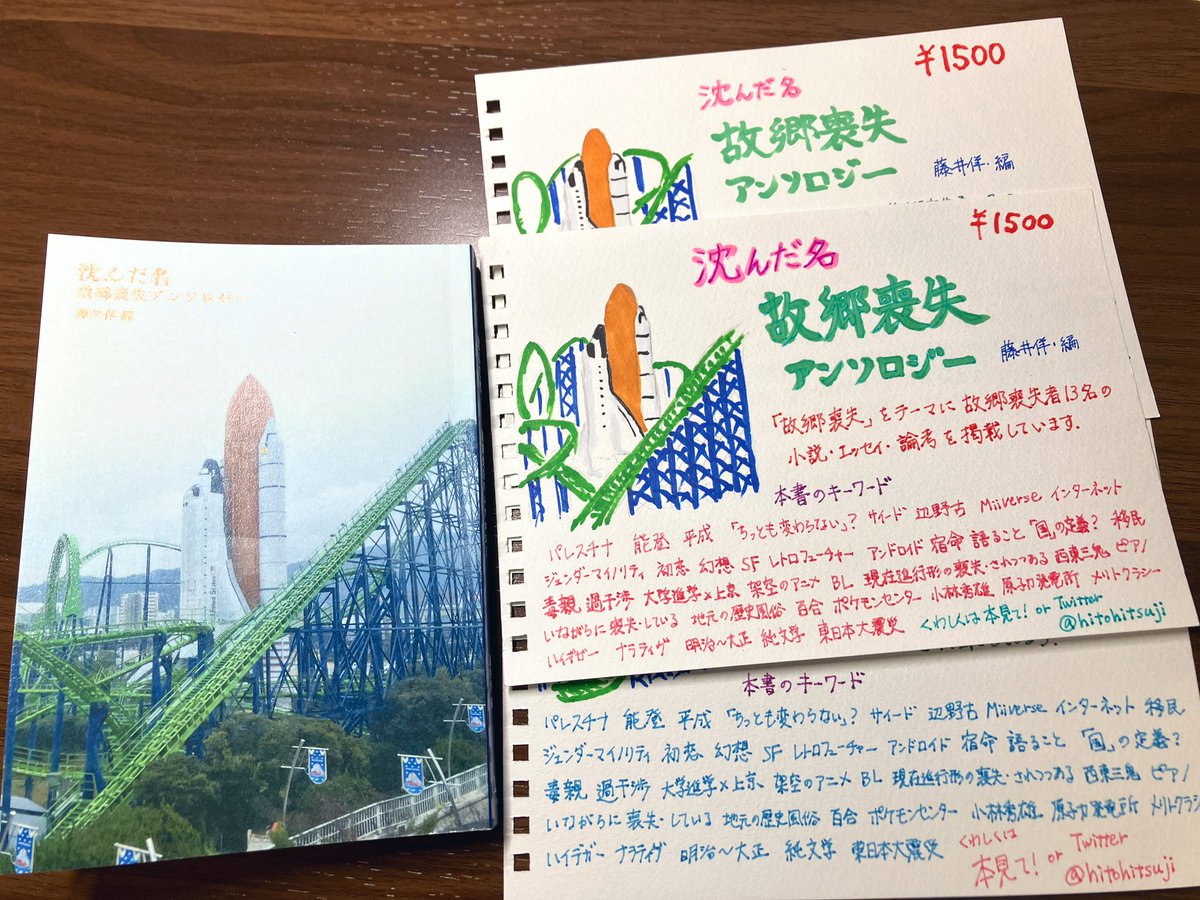 沈んだ名
故郷喪失アンソロジー
藤井佯 編
¥1500
沈んだ名
故郷喪失
アンソロジー
藤井佯・編
¥1500
沈んだ名
故郷喪失
アンソロジー
藤井佯・編
「故郷喪失」をテーマに故郷喪失者13名の
小説・エッセイ・論考を掲載しています.
本書のキーワード
パレスチナ 能登 平成 「ちっとも変わらない」? サイード 辺野古 Miiverse インターネット
ジェンダーマイノリティ 初恋 幻想 SF レトロフューチャー アンドロイド 宿命 語ること 「国」の定義? 移民
毒親 過干渉 大学進学×上京 架空のアニメ BL 現在進行形の喪失・されつつある 西東三鬼 ピアノ
いながらに喪失・している 地元の歴史風俗 百合 ポケモンセンター 小林秀雄 原子力発電所 メリトクラシー
ハイデガー ナラティヴ 明治〜大正 純文学 東日本大震災 くわしくは本見て! or Twitter
@hitohitsuji
本書のキーワード
パレスチナ 能登 平成 「ちっとも変わらない」? サイード 辺野古 Miiverse インターネット 移民
ジェンダーマイノリティ 初恋 幻想 SF レトロフューチャー アンドロイド 宿命 語ること 「国」の定義?
毒親 過干渉 大学進学×上京 架空のアニメ BL 現在進行形の喪失・されつつある 西東三鬼 ピアノ
いながらに喪失・している 地元の歴史風俗 百合 ポケモンセンター 小林秀雄 原子力発電所 メリトクラシ
ハイデガー ナラティヴ 明治〜大正 純文学 東日本大震災 くわしくは
本見て! or Twitter
@hitohitsuji